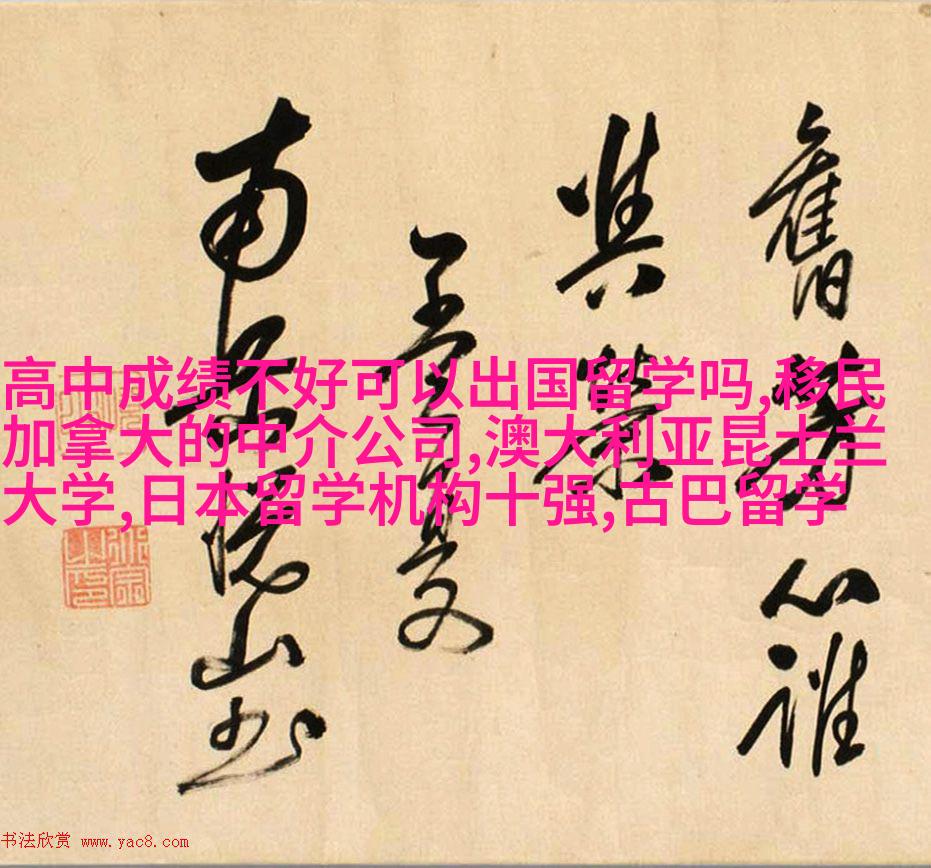 高中成绩不好可以出国留学吗,移民
加拿大的中介公司,澳大利亚昆士兰
大学,日本留学机构十强,古巴留学
舊心誰
與
夏
南山书
书法欣赏 www.yac8.com